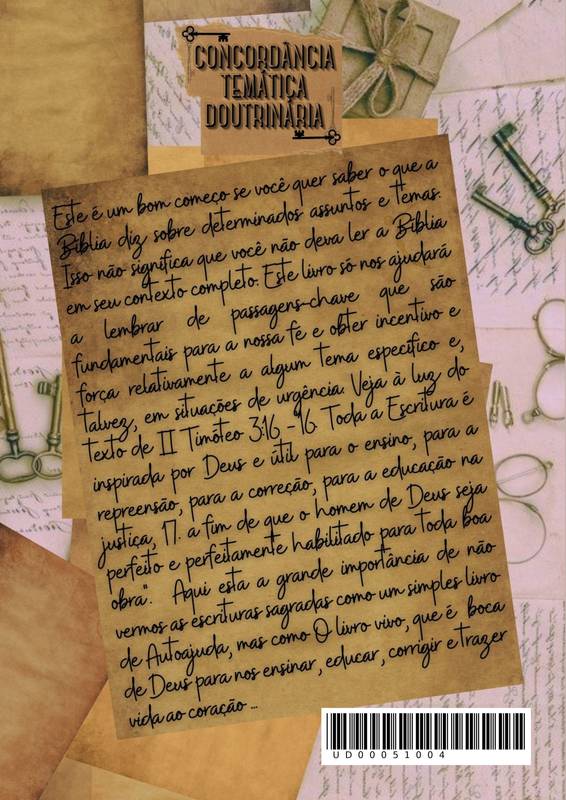 CONCORDÂNCIA
TEMÁTICA
DOUTRINÁRIA
Este é um bom começo se você quer saber o que a
Bíblia diz sobre determinados assuntos e temas.
Isso não significa que você não deva ler a Bíblia
em seu contexto completo. Este livro só nos ajudará
a lembrar de passagens-chave que são
fundamentais para a nossa fé e obter incentivo e
força relativamente a algum tema específico e,
talvez, em situações de urgência. Veja à luz do
texto de II Timóteo 3:16 -16. Toda a Escritura é
inspirada por Deus e útil para o ensino, para a
repreensão, para a correção, para a educação na
justiça, 17. a fim de que o homem de Deus seja
perfeito e perfeitamente habilitado para toda boa
obra". Aqui esta a grande importância de não
vermos as escrituras sagradas como um simples livro
de Autoajuda, mas como O livro vivo, que é boca
de Deus para nos ensinar, educar, corrigir e trazer
vida ao coração ...
UD00051004